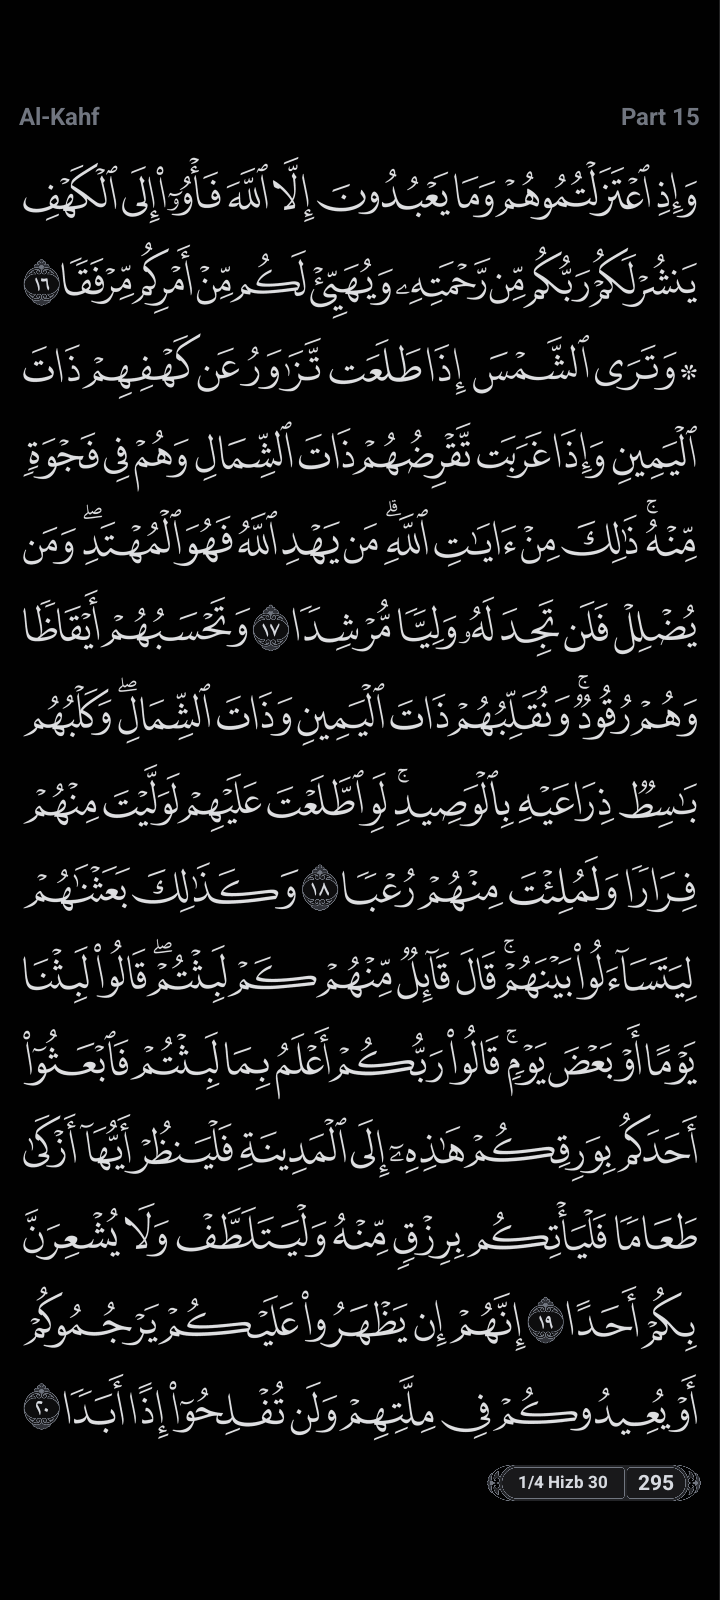 Al-Kahf Part 15
وَإِذِ ٱعْتَزَلْتُمُوهُمْ وَمَا يَعْبُدُونَ إِلَّا ٱللَّهَ فَأْوُۥٓا۟ إِلَى ٱلْكَهْفِ
يَنشُرْ لَكُمْ رَبُّكُم مِّن رَّحْمَتِهِۦ وَيُهَيِّئْ لَكُم مِّنْ أَمْرِكُم مِّرْفَقًا ١٦
۞ وَتَرَى ٱلشَّمْسَ إِذَا طَلَعَت تَّزَٰوَرُ عَن كَهْفِهِمْ ذَاتَ
ٱلْيَمِينِ وَإِذَا غَرَبَت تَّقْرِضُهُمْ ذَاتَ ٱلشِّمَالِ وَهُمْ فِى فَجْوَةٍ
مِّنْهُ ۚ ذَٰلِكَ مِنْ ءَايَٰتِ ٱللَّهِ ۗ مَن يَهْدِ ٱللَّهُ فَهُوَ ٱلْمُهْتَدِ ۖ وَمَن
يُضْلِلْ فَلَن تَجِدَ لَهُۥ وَلِيًّا مُّرْشِدًا ١٧ وَتَحْسَبُهُمْ أَيْقَاظًا
وَهُمْ رُقُودٌ ۚ وَنُقَلِّبُهُمْ ذَاتَ ٱلْيَمِينِ وَذَاتَ ٱلشِّمَالِ ۖ وَكَلْبُهُم
بَٰسِطٌ ذِرَاعَيْهِ بِٱلْوَصِيدِ ۚ لَوِ ٱطَّلَعْتَ عَلَيْهِمْ لَوَلَّيْتَ مِنْهُمْ
فِرَارًا وَلَمُلِئْتَ مِنْهُمْ رُعْبًا ١٨ وَكَذَٰلِكَ بَعَثْنَٰهُمْ
لِيَتَسَآءَلُوا۟ بَيْنَهُمْ ۚ قَالَ قَآئِلٌ مِّنْهُمْ كَمْ لَبِثْتُمْ ۖ قَالُوا۟ لَبِثْنَا
يَوْمًا أَوْ بَعْضَ يَوْمٍ ۚ قَالُوا۟ رَبُّكُمْ أَعْلَمُ بِمَا لَبِثْتُمْ فَٱبْعَثُوٓا۟
أَحَدَكُم بِوَرِقِكُمْ هَٰذِهِۦٓ إِلَى ٱلْمَدِينَةِ فَلْيَنظُرْ أَيُّهَآ أَزْكَىٰ
طَعَامًا فَلْيَأْتِكُم بِرِزْقٍ مِّنْهُ وَلْيَتَلَطَّفْ وَلَا يُشْعِرَنَّ
بِكُمْ أَحَدًا ١٩ إِنَّهُمْ إِن يَظْهَرُوا۟ عَلَيْكُمْ يَرْجُمُوكُمْ
أَوْ يُعِيدُوكُمْ فِى مِلَّتِهِمْ وَلَن تُفْلِحُوٓا۟ إِذًا أَبَدًا ٢٠
1/4 Hizb 30 295